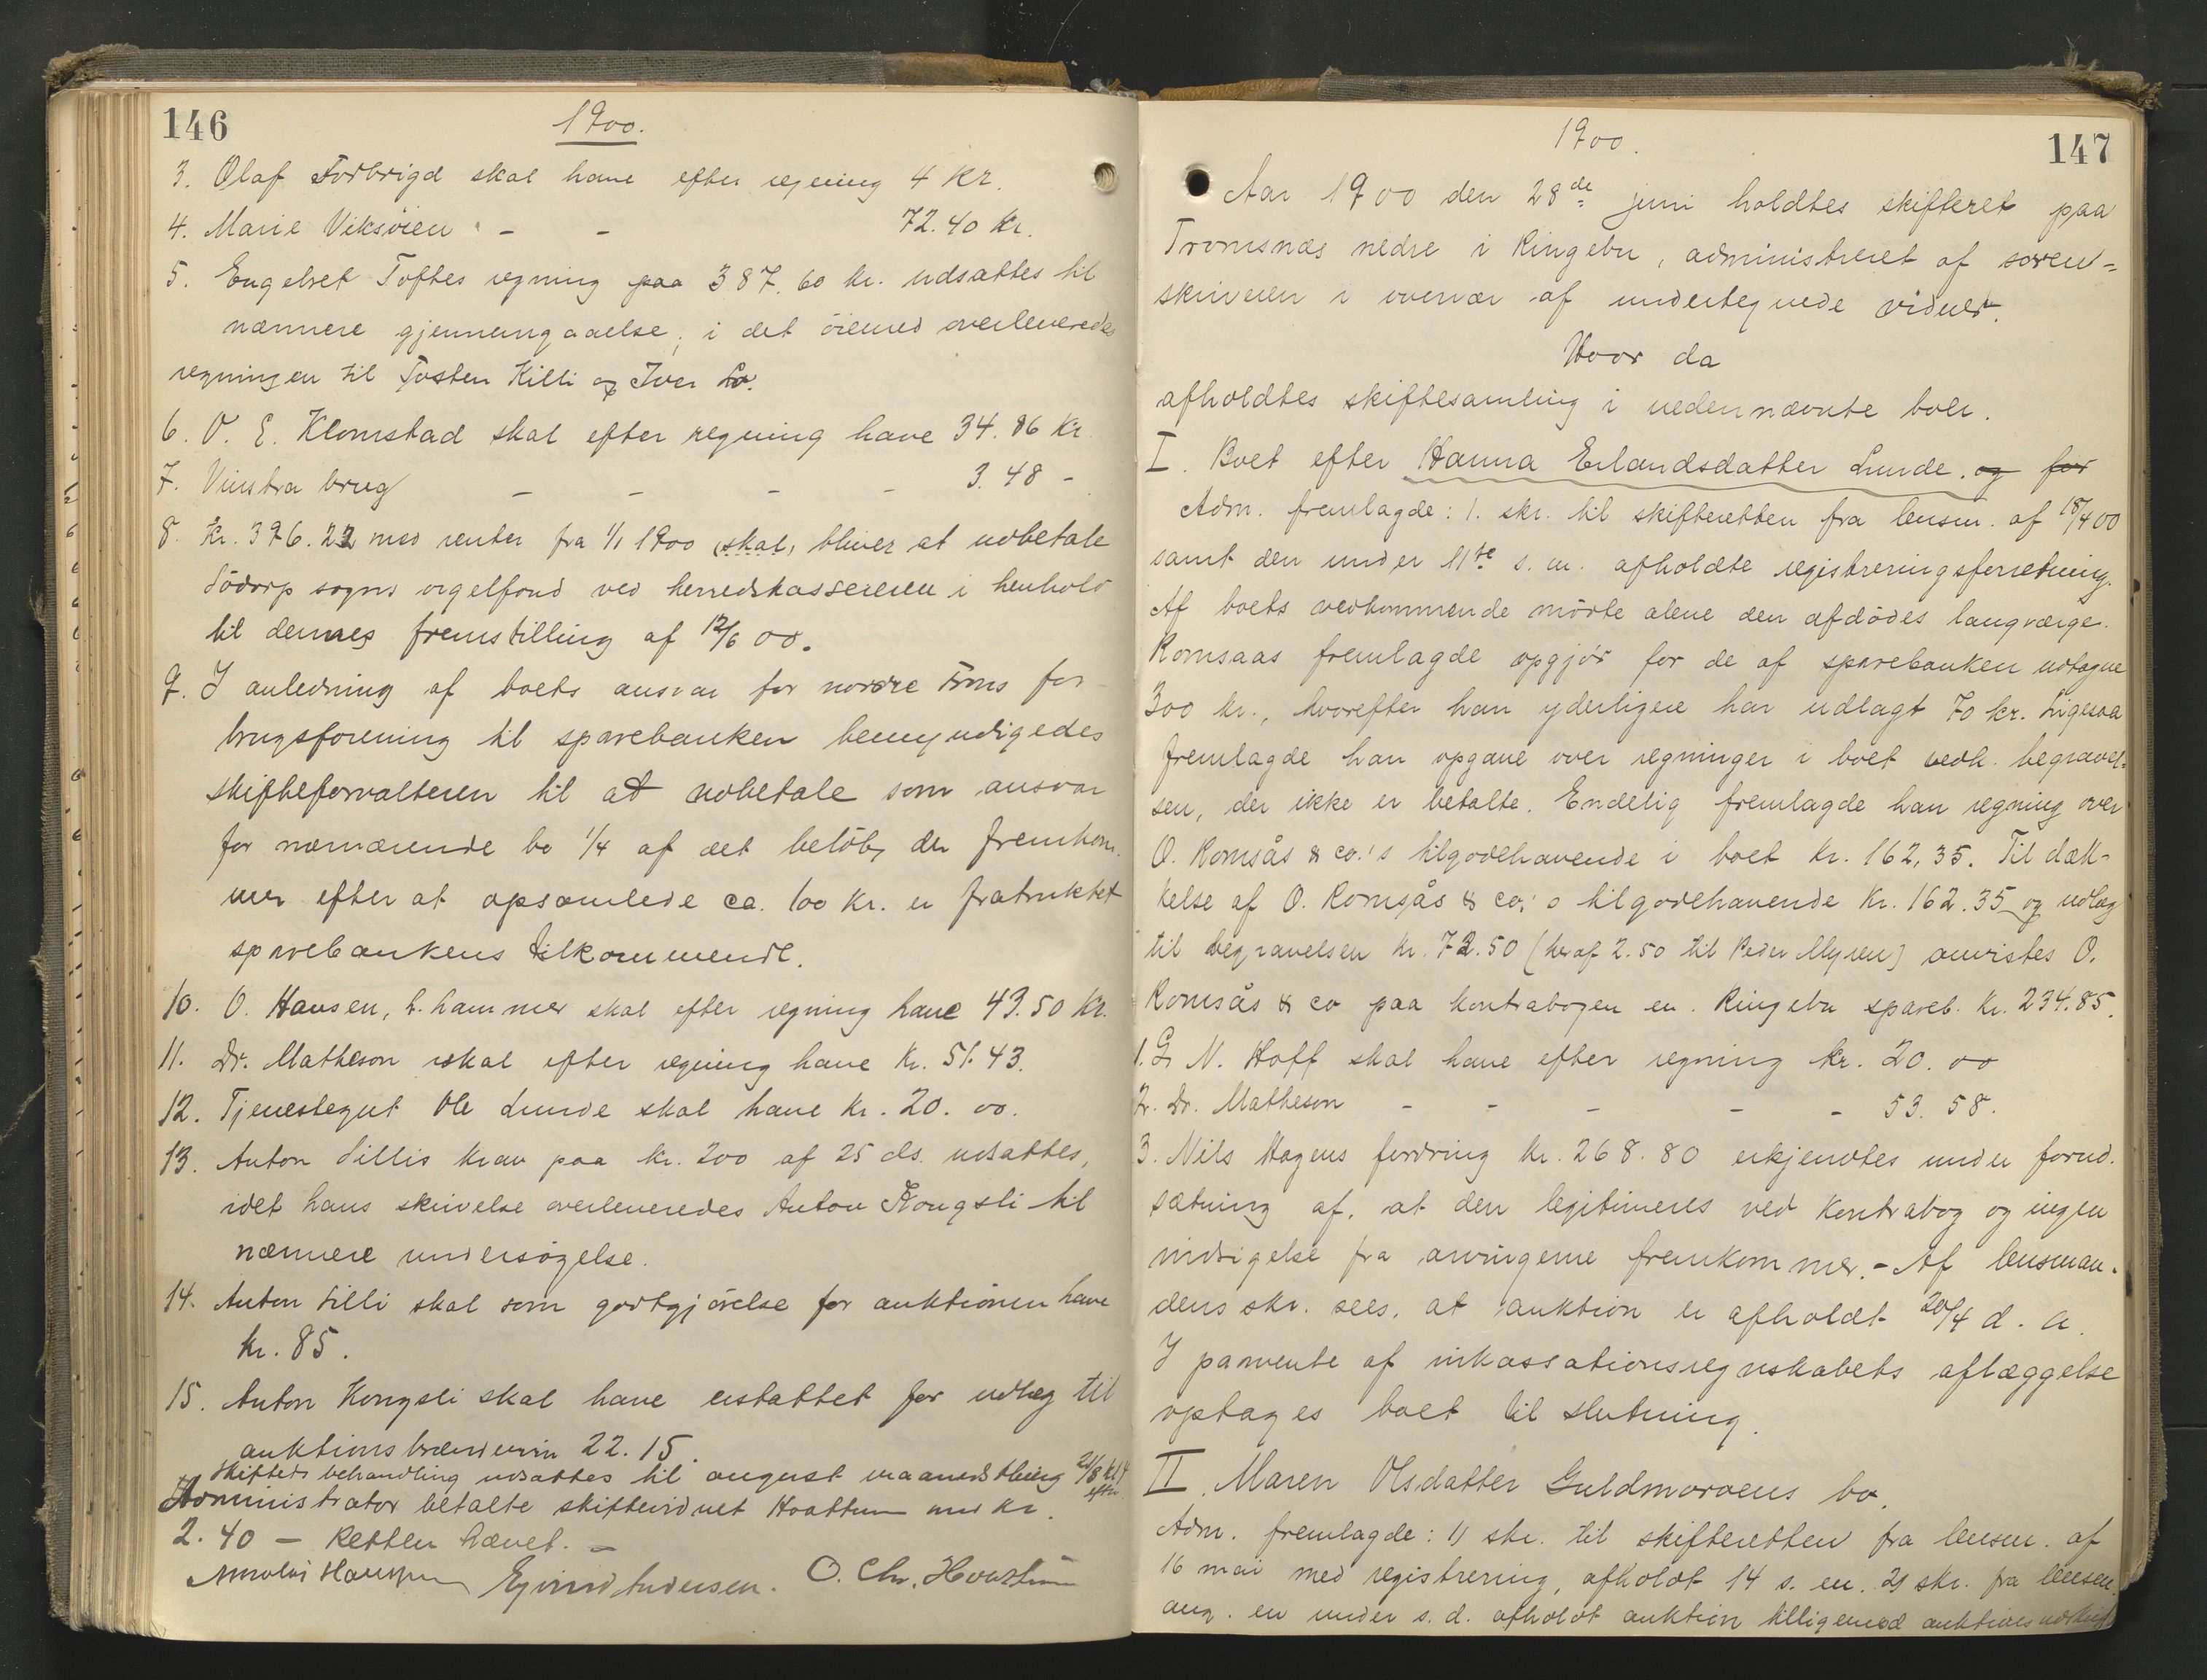 146
1900.
3. Olaf Forbrigd skal have efter regning 4 kr.
4. Marie Viksøien - - 72.40 kr.
5. Engebret Toftes regning paa 387.60 kr. udsattes til
nærmere gjennemgaaelse; i det øiemed overleveredes
regningen til Tosten Killi og Iver Lo.
6. O. E. Klomstad skal efter regning have 34.86 kr
7. Vinstra brug - - - - 3.48 -
8. Kr. 396.22 med renter fra 1/1 1900 skal, bliver at udbetale
Sødorp sogns orgelfond ved herredskassereren i henhold
til dennes fremstilling af 12/6 00.
9. I anledning af boets ansvar for nordre Frons for-
brugsforening til sparebanken bemyndigedes
skifteforvalteren til at udbetale som ansvar
for nærværende bo 1/4 af det beløb, der fremkom-
mer efter at opsamlede ca. 100 kr. er fratrukket
sparebankens tilkommende.
10. O. Hansen, L.hammer skal efter regning have 43.50 kr.
11. Dr. Matheson skal efter regning have kr. 51.43.
12. Tjenestegut Ole Lunde skal have kr. 20.00.
13. Anton Tillis krav paa kr. 200 af 25 ds. udsattes,
idet hans skrivelse overleveredes Anton Kongsli til
nærmere undersøgelse.
14. Anton Filli skal som godtgjørelse for auktionen have
kr. 85.
15. Anton Kongsli skal have erstattet for udlæg til
auktionsbrændevin 22.15.
Skiftets behandling udsattes til august maanedsthing 21/8 kl 4
eftm
Administrator betalte skiftevidnet Hovattum med kr.
2.40 — Retten hævet. —
Nicolai Hansen Eyvind Andersen. O. Chr. Hovattum
147
1900.
Aar 1900 den 28de juni holdtes skifteret paa
Tromsnæs nedre i Ringebu, administreret af soren-
skriveren i overvær af undertegnede vidner.
Hvor da
afholdtes skiftesamling i nedennævnte boer.
I. Boet efter Hanna Erlandsdatter Lunde. og for
Adm. fremlagde: 1. skr. til skifteretten fra lensm. af 18/4 00
samt den under 11te s. m. afholdte registreringsforretning.
Af boets vedkommende mødte alene den afdødes laugværge
Romsaas fremlagde opgjør for de af sparebanken udtagne
300 kr., hvorefter han yderligere har udlagt 70 kr. Ligesaa
fremlagde han opgave over regninger i boet vedk. begravel-
sen, der ikke er betalte. Endelig fremlagde han regning over
O. Romsås & co.'s tilgodehavende i boet kr. 162,35. Til dæk-
kelse af O. Romsås & co;s tilgodehavende kr. 162.35 og udlæg
til begravelsen kr. 72.50 (heraf 2.50 til Peder Myren) anvistes O.
Romsås & co paa kontrabogen en. Ringebu spareb. kr. 234.85.
1. G. N. Hoff skal have efter regning kr. 20.00
2. Dr. Matheson - - - - - 53.58.
3. Nils Hagens fordring kr. 268.80 erkjendtes under forud-
sætning af, at den legitimeres ved kontrabog og ingen
indsigelse fra arvingerne fremkommer. - Af lensman-
dens skr. sees, at auktion er afholdt 20/4 d. a.
I paavente af inkassationsregnskabets aflæggelse
optages boet til slutning.
II. Maren Olsdatter Guldmoroens bo.
Adm. fremlagde: 1) skr. til skifteretten fra lensm. af
16 mai med registrering, afholdt 14 s. m. 2) skr. fra lensm.
ang. en under s. d. afholdt auktion tilligemed auktionsudskrift